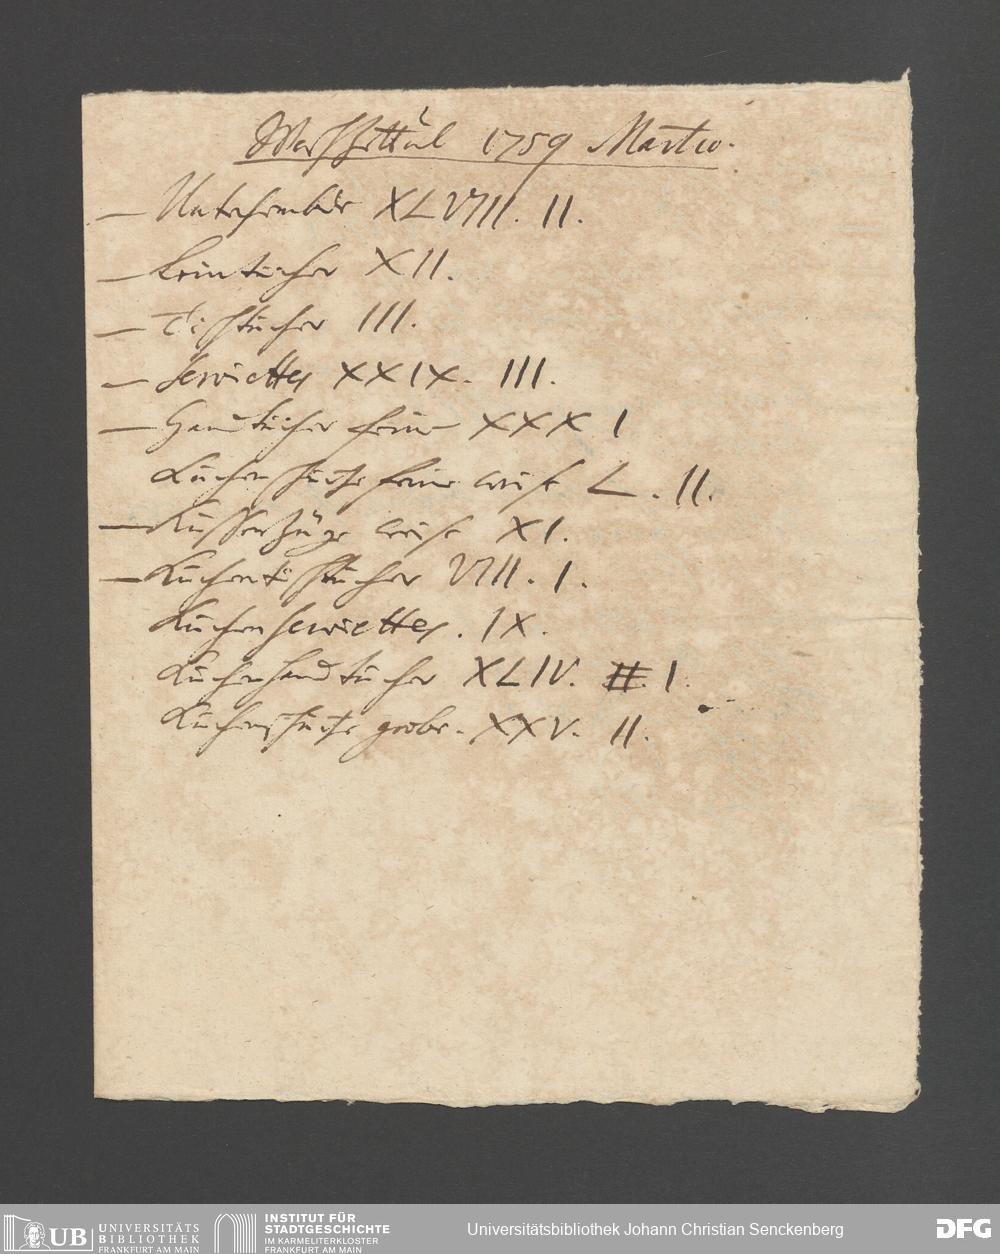 Waschzettul 1759 Martio.
— Unterhembder XLVIII. II.
— Leintücher XII.
— Tischtücher III.
— Serviettes XXIX. III.
— Handtücher feine XXX I
Küchenschürze feine weise L. II.
— Küssenzüge weise XI.
— Küchentischtücher VIII. I.
Küchenserviettes. IX.
Küchenhandtücher XLIV. I.
Küchenschürze grobe. XXV. II.
UB UNIVERSITÄTS BIBLIOTHEK FRANKFURT AM MAIN
INSTITUT FÜR STADTGESCHICHTE IM KARMELITERKLOSTER FRANKFURT AM MAIN
Universitätsbibliothek Johann Christian Senckenberg
DFG